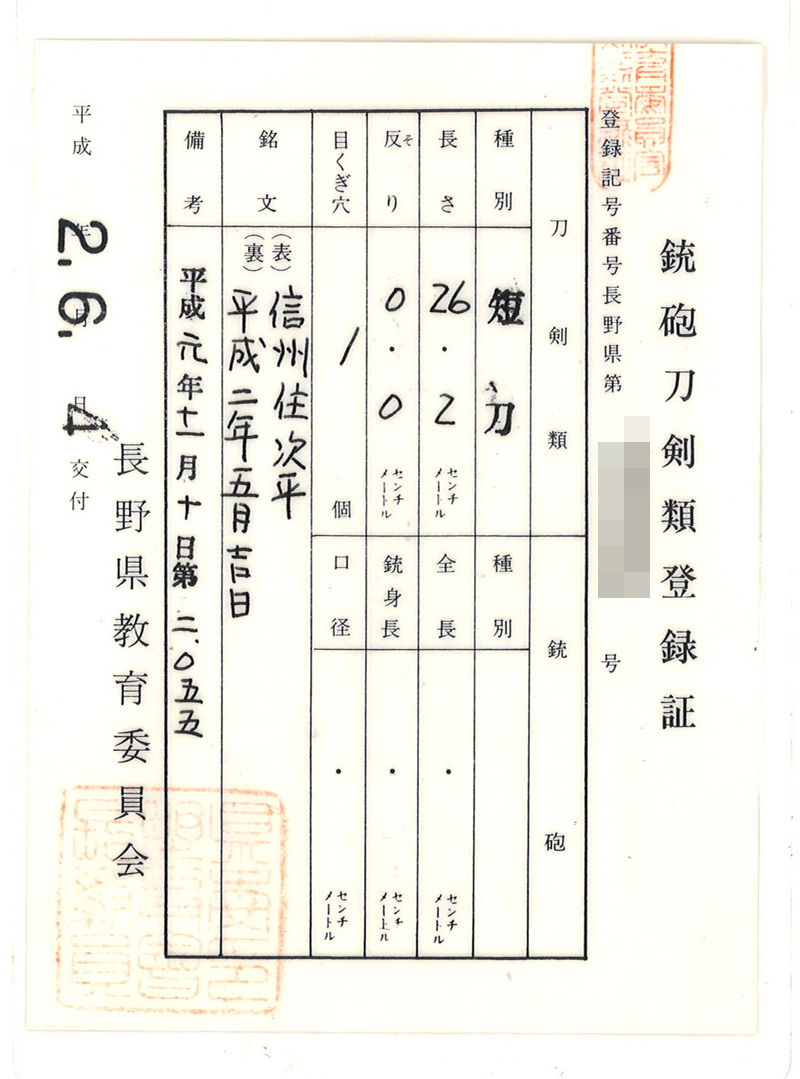 銃砲刀剣類登録証
登録記号番号長野県第 号
刀剣類
銃砲
種別 短刀
種別
長さ 26.2 センチメートル
全長 ・ センチメートル
反り そ 0.0 センチメートル
銃身長 ・ センチメートル
目くぎ穴 1 個
口径 ・ センチメートル
銘文 (表) 信州住次平
(裏) 平成二年五月吉日
備考 平成元年十一月十日第二、〇五五
長野県教育委員会
平成 年 月 日交付
2. 6. 4